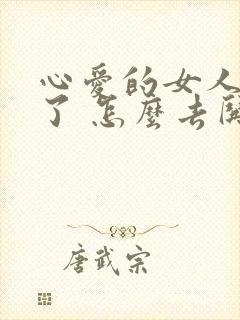 心爱的女人
了 怎麼去
唐武宗